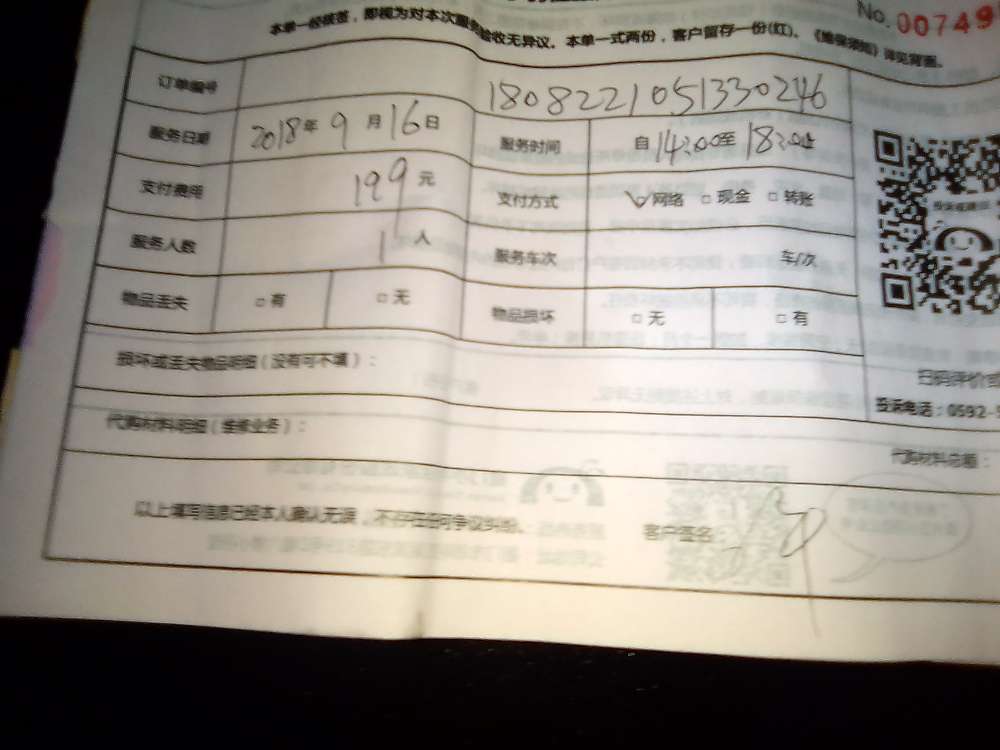 No. 00749
本单一经核签，即视为对本次服务验收无异议。本单一式两份，客户留存一份(红)。《维保须知》详见背面。
订单编号 1808221051330246
服务日期 2018年9月16日 服务时间 自14:00至18:00止
支付费用 199元 支付方式 ☑网络 □现金 □转账
服务人数 1人 服务车次 车/次
物品丢失 □有 □无 物品损坏 □无 □有
损坏或丢失物品明细（没有可不填）：
扫码评价或
投诉电话：0592-5
代购材料明细（维修业务）：
代购材料总额：
以上填写信息已经本人确认无误，不存在任何争议纠纷。 客户签名：